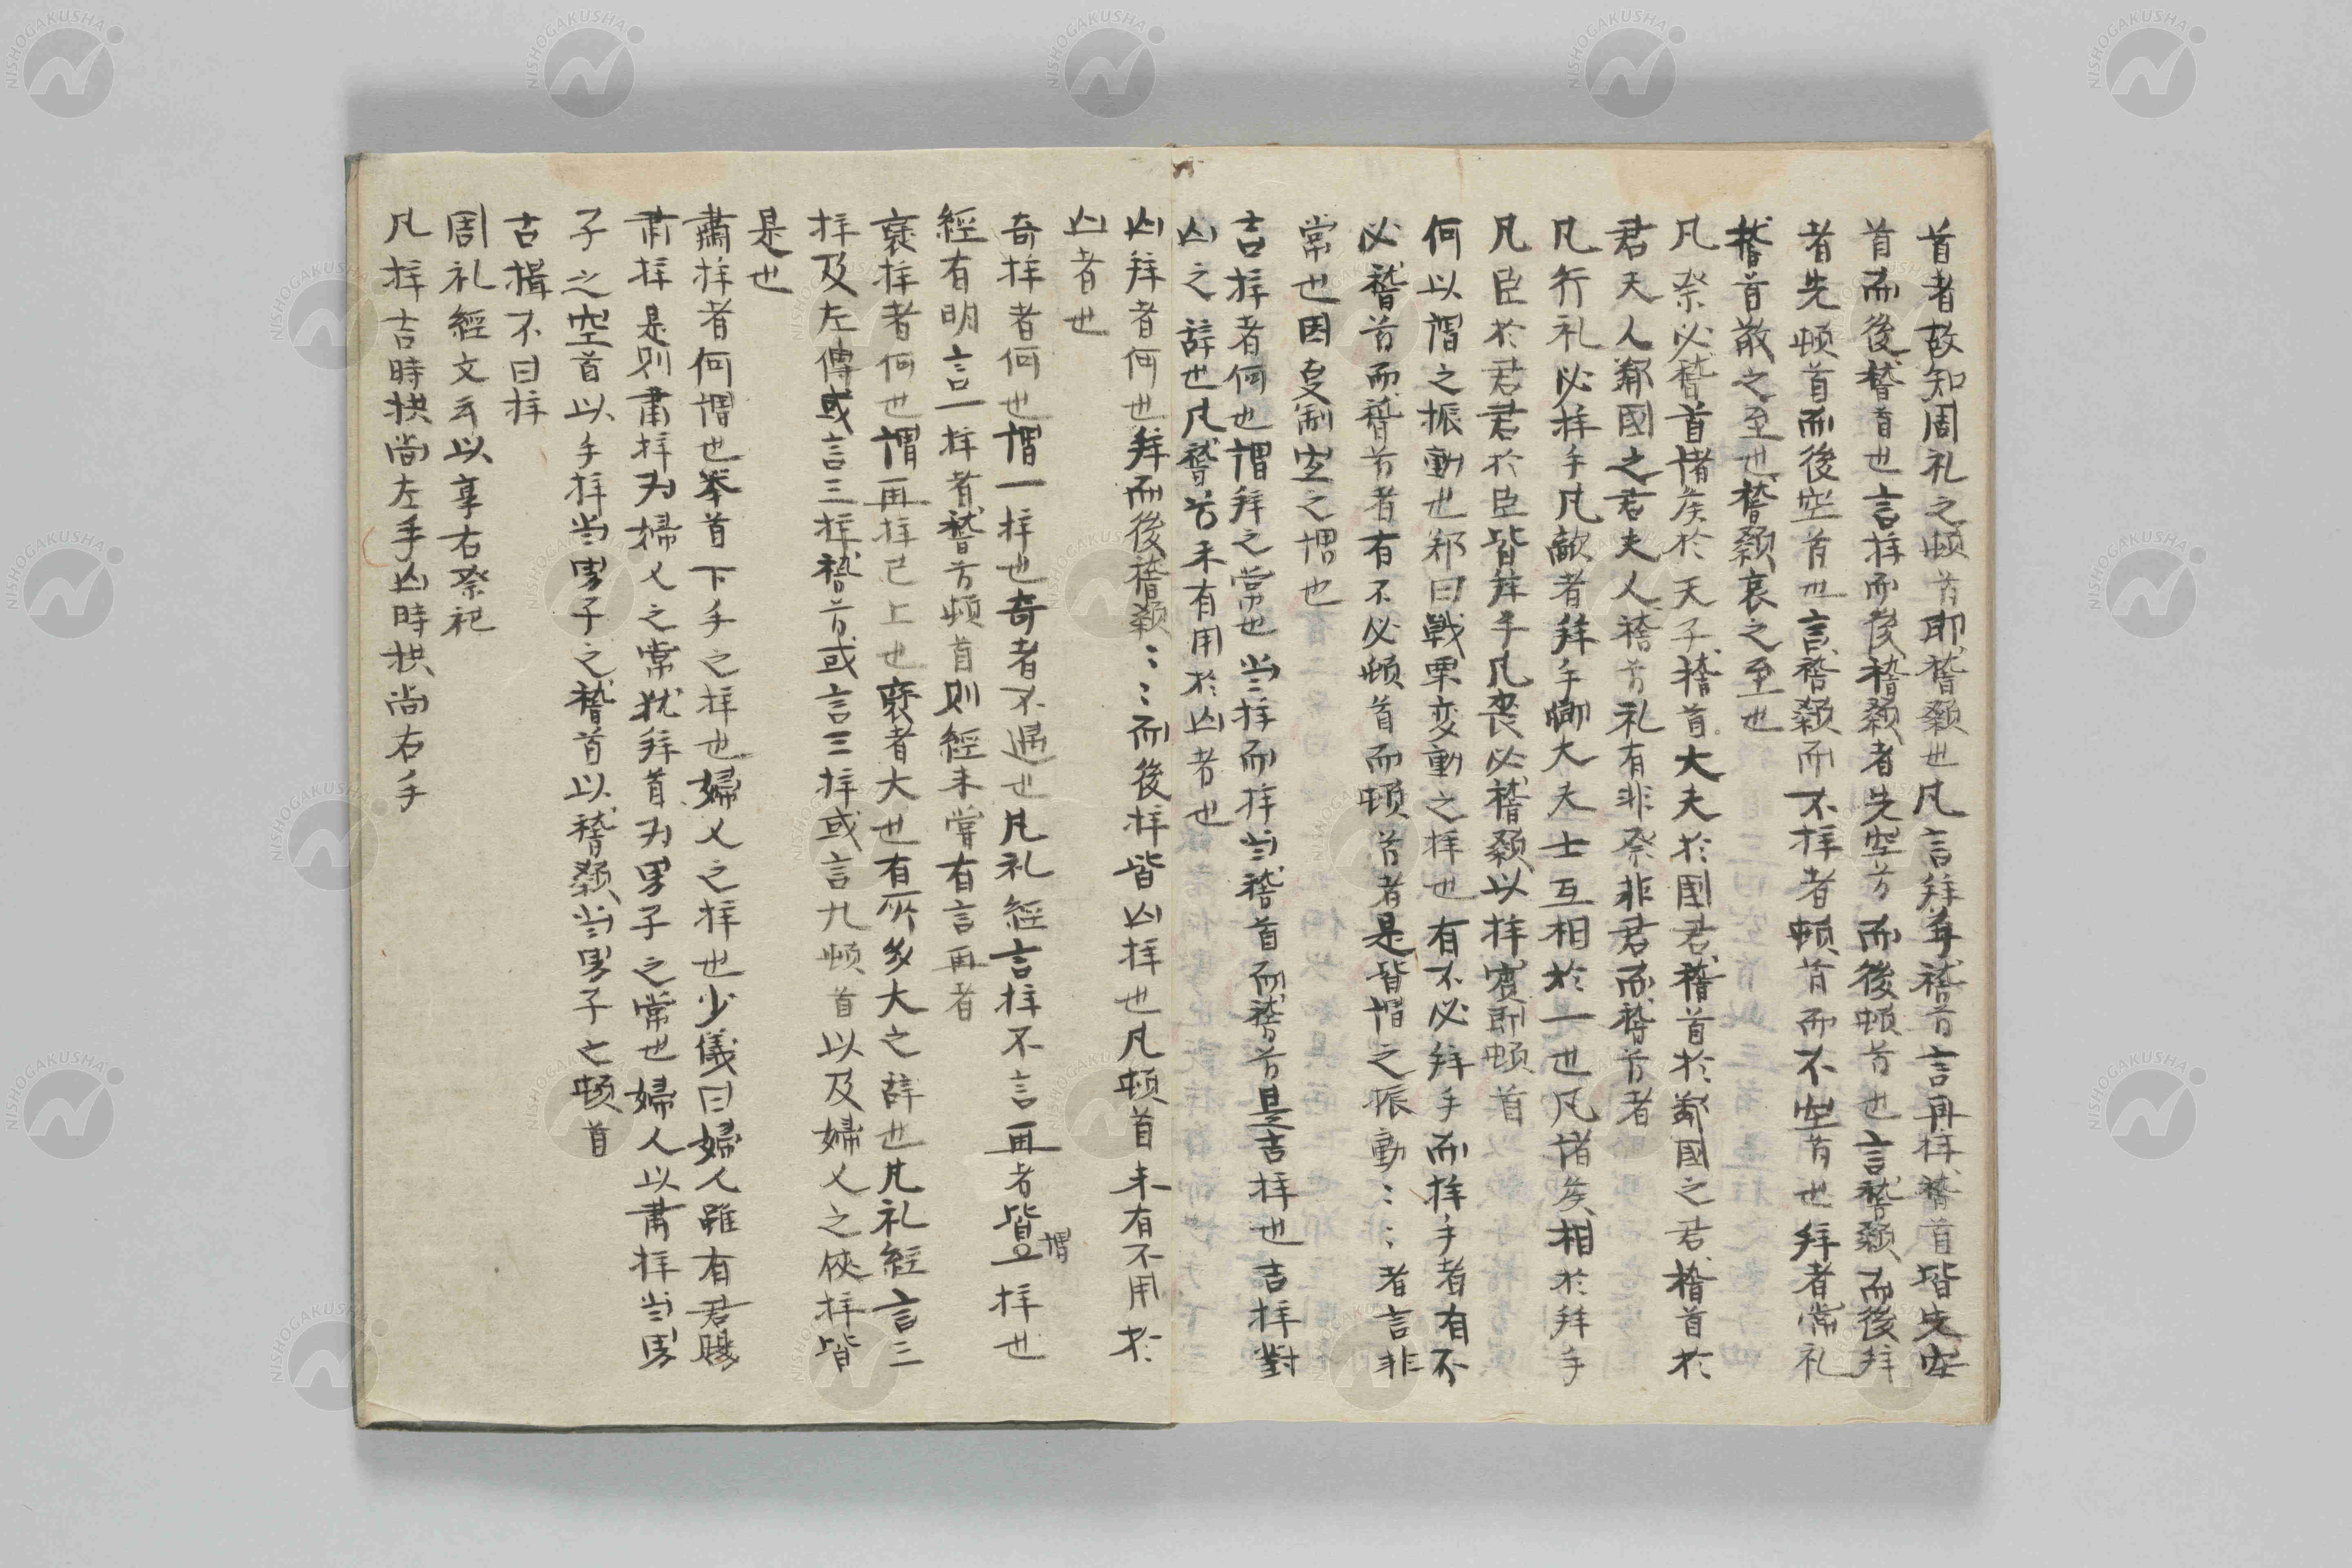 首者故知周礼之頓首即稽顙也凡言拜手稽首言再拝稽首皆先空
首而後稽首也言拝而後稽顙者先空首而後頓首也言稽顙而後拜
者先頓首而後空首也言稽顙而不拝者頓首而不空首也拜者常礼
稽首敬之至也稽顙哀之至也
凡祭必稽首諸侯於天子稽首大夫於國君稽首於鄰國之君稽首於
君夫人鄰國之君夫人稽首礼有非祭非君而稽首者
凡行礼必拝手凡敵者拜手卿大夫士互相於一也凡諸侯相於拜手
凡臣於君君於臣皆拜手凡喪必稽顙以拝賓即頓首
何以謂之振動也鄭曰戰栗変動之拝也有不必拜手而拝手者有不
必稽首而稽首者有不必頓首而頓首者是皆謂之振動〻〻者言非
常也因变制宜之謂也
吉拝者何也謂拜之常也当拝而拝当稽首而稽首是吉拝也吉拝對
凶之辞也凡稽首未有用於凶者也
凶拜者何也拜而後稽顙〻〻而後拝皆凶拝也凡頓首未有不用於
凶者也
奇拝者何也謂一拝也奇者不遇也凡礼經言拝不言再者皆謂一拝也
經有明言一拝者稽首頓首則經未嘗有言再者
褒拝者何也謂再拝已上也褒者大也有所多大之辞也凡礼經言三
拝及左傳或言三拝稽首或言三拝或言九頓首以及婦人之俠拝皆
是也
肅拝者何謂也挙首下手之拝也婦人之拝也少儀曰婦人雖有君賜
肅拝是則肅拝为婦人之常犹拜首为男子之常也婦人以肅拝当男
子之空首以手拝当男子之稽首以稽顙当男子之頓首
古揖不曰拝
周礼經文云以享右祭祀
凡拝吉時拱尚左手凶時拱尚右手
NISHOGAKUSHA